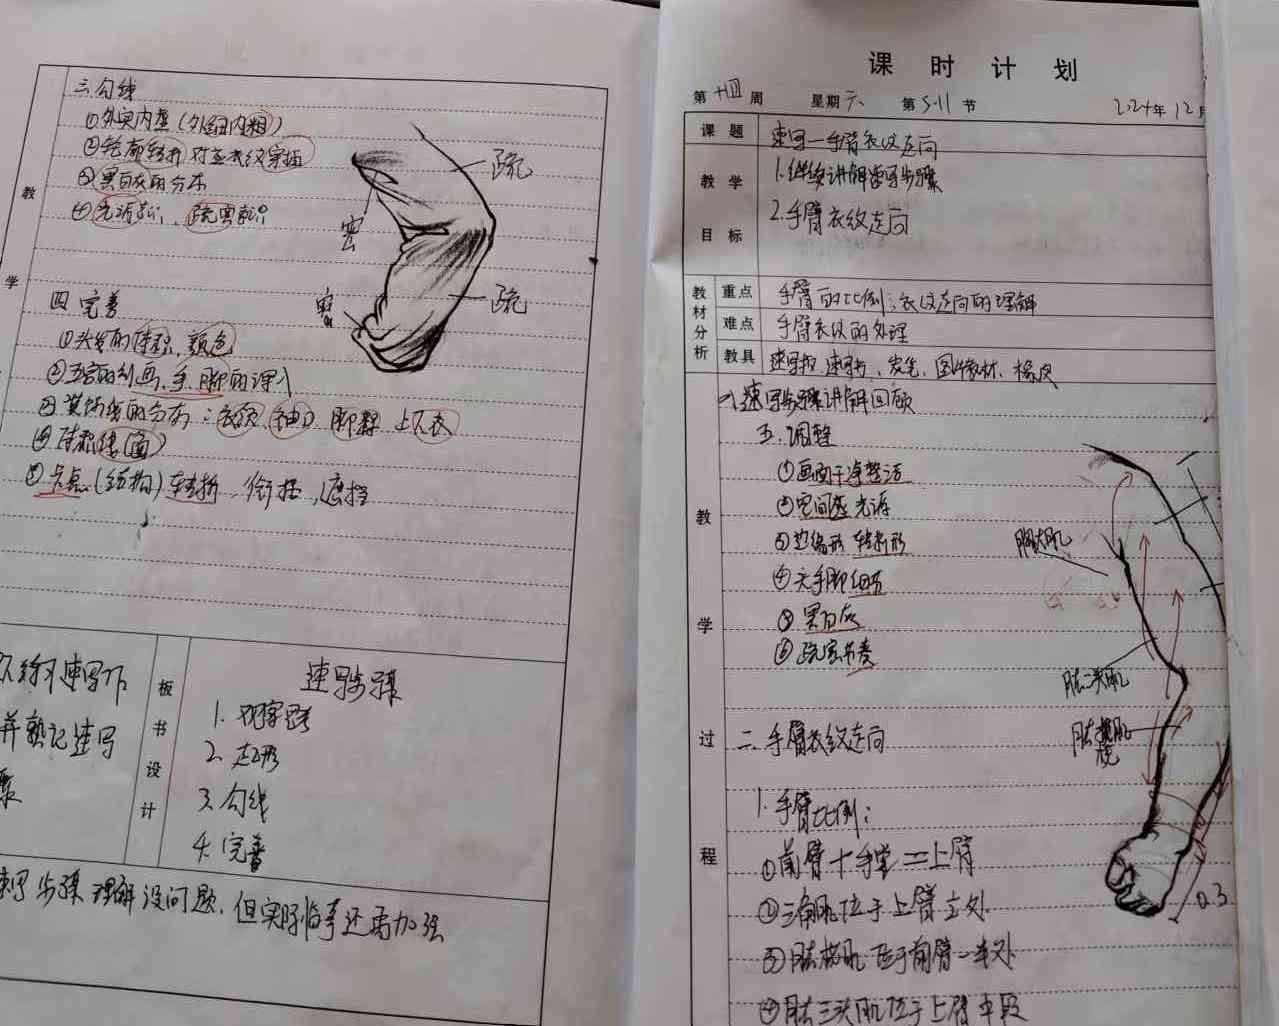 三 勾线
①外实内虚（外细内粗）
②轮廓转折 对应衣纹穿插
③黑白灰的分布
④光源意识、疏密意识
疏
密
教
学
四 完善
密
疏
①头发的体积、颜色
②五官的刻画、手、脚的深入
③装饰线的分布：衣领 袖口 脚踝 上下衣
④体积线（面）
⑤卡点（结构）转折，衔接，遮挡
练习速写
并熟记速写
骤
板
书
设
计
速写步骤
1. 观察
2. 起形
3. 勾线
4. 完善
步骤理解没问题，但实际临摹还需加强
课时计划
第 十四 周 星期 六 第 5-11 节 2024年 12月
课题 速写—手臂衣纹走向
教学
目标
1. 继续讲解速写步骤
2. 手臂衣纹走向
教材分析
重点 手臂的比例；衣纹走向的理解
难点 手臂衣纹的处理
教具 速写板、速写书、炭笔、图片教材、橡皮
教
学
过
程
一、速写步骤讲解回顾
五、调整
①画面干净整洁
②空间感 光源
③边缘形 转折形
④头手脚细节
⑤黑白灰
⑥疏密节奏
二、手臂衣纹走向
1. 手臂比例：
①前臂＋手掌＝上臂
②三角肌位于上臂
③肱桡肌位于前臂一半处
④肱三头肌位于上臂中段
胸大肌
肱二头肌
肱桡肌
0.3